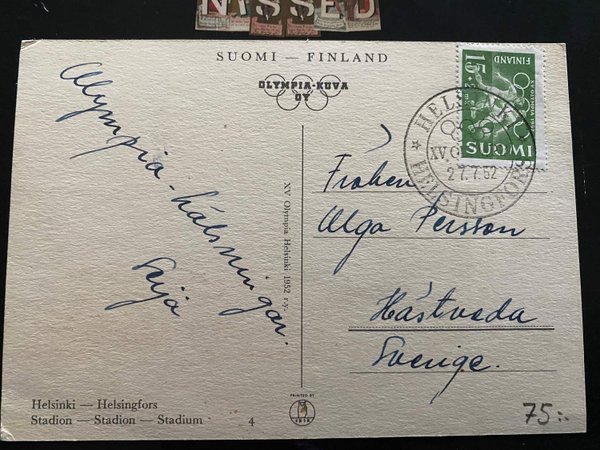 NISSED
SUOMI — FINLAND
OLYMPIA-KUVA
OY
Olympia-hälsningar.
Seija
XV Olympia Helsinki 1952 r.y.
15
FINLAND
SUOMI
HELSINKI
XV.O
27.7.52
HELSINGFORS
Fröken
Olga Persson
Hästveda
Sverige.
Helsinki — Helsingfors
Stadion — Stadion — Stadium 4
PRINTED BY
75:-